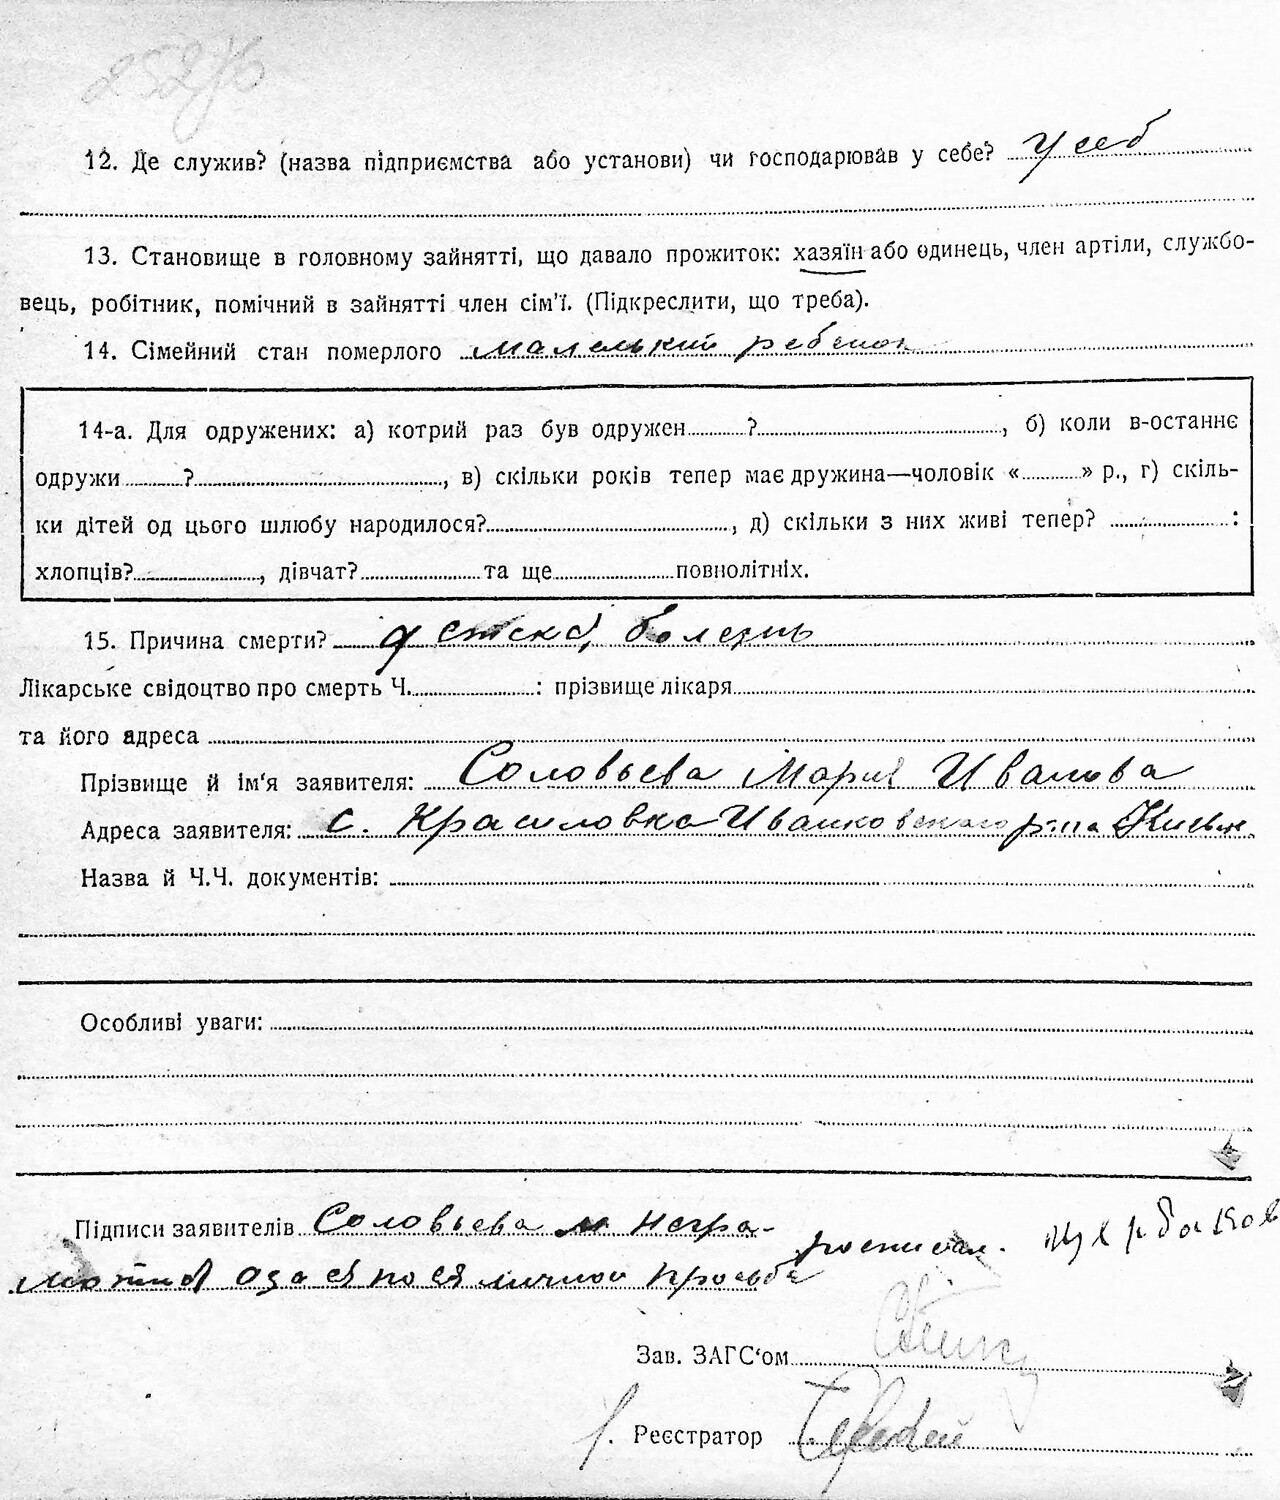 12. Де служив? (назва підприємства або установи) чи господарював у себе? у себ
13. Становище в головному зайнятті, що давало прожиток: хазяїн або одинець, член артіли, службо-
вець, робітник, помічний в зайнятті член сім'ї. (Підкреслити, що треба).
14. Сімейний стан померлого маленький ребенок
14-а. Для одружених: а) котрий раз був одружен ? , б) коли в-останнє
одружи ? , в) скільки років тепер має дружина—чоловік « » р., г) скіль-
ки дітей од цього шлюбу народилося? , д) скільки з них живі тепер? :
хлопців? , дівчат? та ще повнолітніх.
15. Причина смерти? детска болезнь
Лікарське свідоцтво про смерть Ч. : прізвище лікаря
та його адреса
Прізвище й ім'я заявителя: Соловьева Мария Ивановa
Адреса заявителя: с. Красиловка Иванковского р-на Киевк.
Назва й Ч.Ч. документів:
Особливі уваги:
Підписи заявителів Соловьева м негра-
мотна личной просьбе
Зав. ЗАГС'ом
Реєстратор